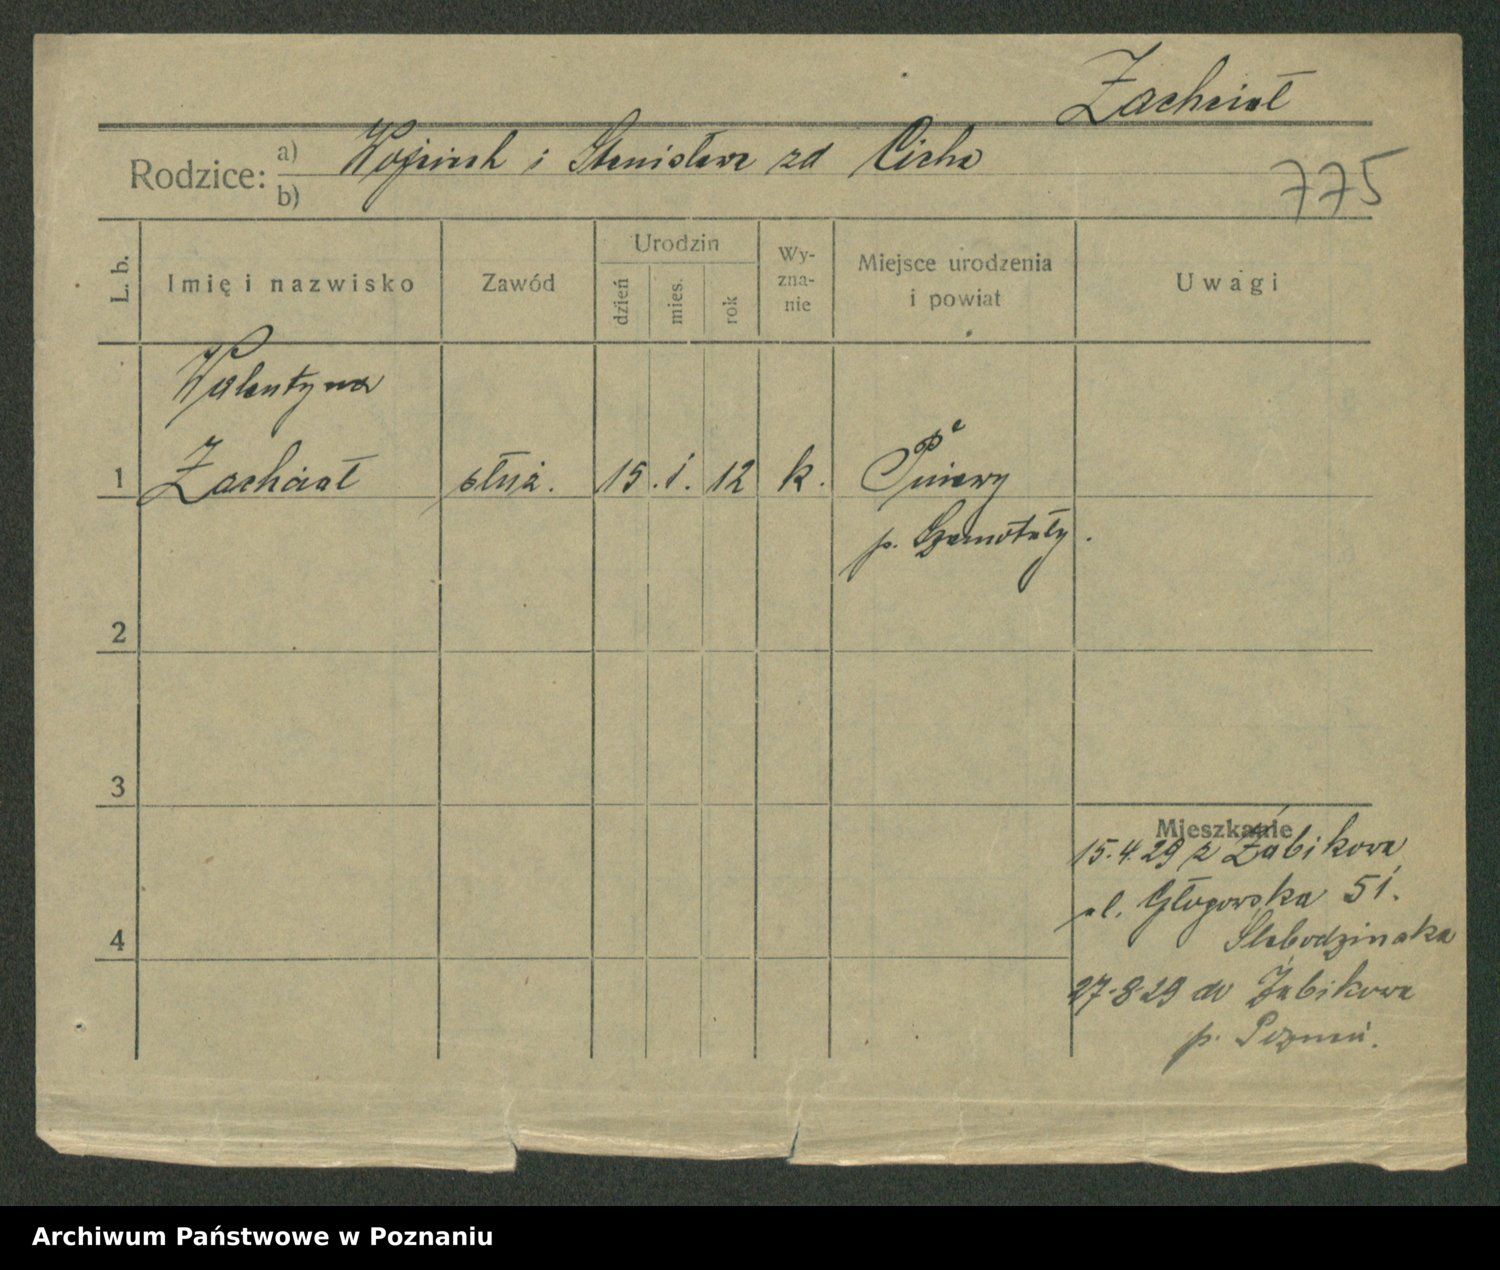 Zachciał
Rodzice: a) Wojciech i Stanisława zd Cicha
b)
775
L. b.
Imię i nazwisko
Zawód
Urodzin
dzień
mies.
rok
Wy-
zna-
nie
Miejsce urodzenia
i powiat
Uwagi
Walentyna
1 Zachciał służ. 15. 1. 12 k. Pniewy
p. Szamotuły.
2
3
4
Mieszkanie
15.4.29 z Żabikowa
ul. Głogowska 51.
27.8.29 do Żabikowa
p. Poznań.
Archiwum Państwowe w Poznaniu